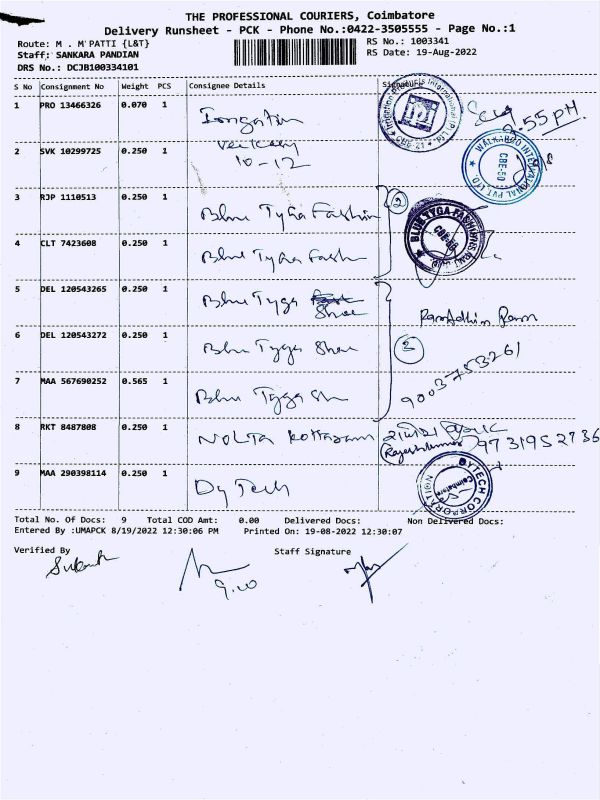 THE PROFESSIONAL COURIERS, Coimbatore
Delivery Runsheet - PCK - Phone No.:0422-3505555 - Page No.:1
Route: M . M PATTI {L&T} RS No.: 1003341
Staff: SANKARA PANDIAN RS Date: 19-Aug-2022
DRS No.: DCJB100334101
S No Consignment No Weight PCS Consignee Details Signature
1 PRO 13466326 0.070 1
3.55 PM
2 SVK 10299725 0.250 1
10-12
WALKAROO INTERNATIONAL PVT. LTD. CBE-50
3 RJP 1110513 0.250 1 Blue Tyga Fashin 2
BLUE TYGA FASHIONS
4 CLT 7423608 0.250 1 Blue Tyga Fash
5 DEL 120543265 0.250 1 Blue Tyga Shoe
6 DEL 120543272 0.250 1 Blue Tyga Shoe 3
9003753261
7 MAA 567690252 0.565 1 Blue Tyga Sh
8 RKT 8487808 0.250 1 NOLTA
Rajeshkumar 9731952736
9 MAA 290398114 0.250 1 Dy Tech
DYTECH CORPORATION Coimbatore
Total No. Of Docs: 9 Total COD Amt: 0.00 Delivered Docs: Non Delivered Docs:
Entered By :UMAPCK 8/19/2022 12:30:06 PM Printed On: 19-08-2022 12:30:07
Verified By Staff Signature
9.00